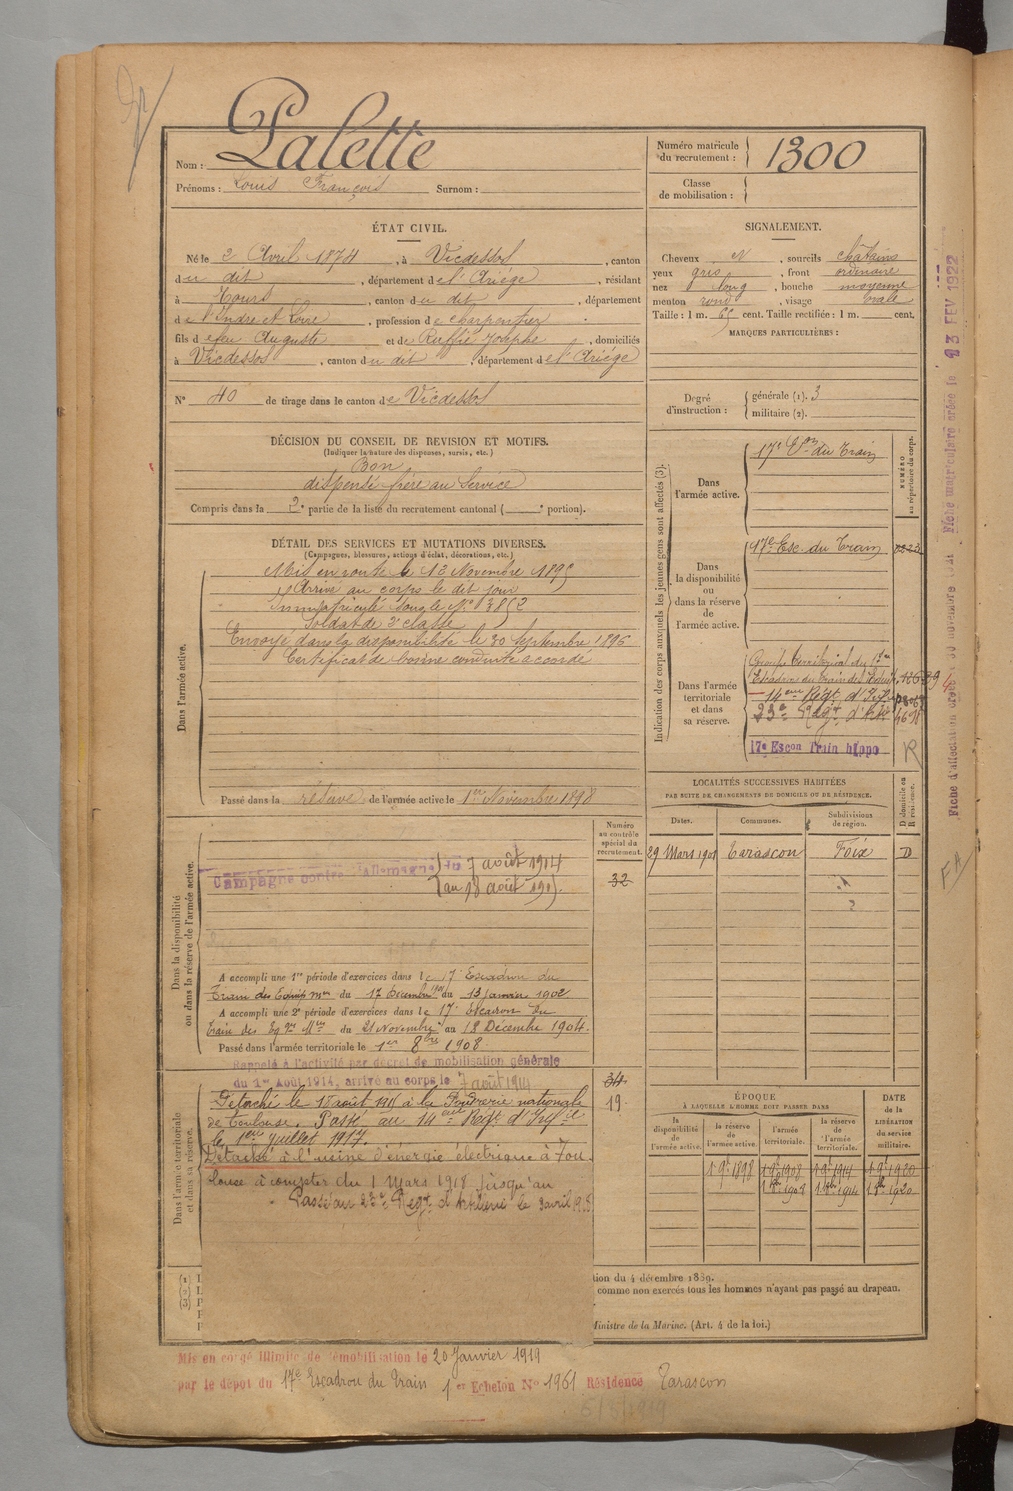 Nom : Palette
Prénoms : Louis François Surnom :
Numéro matricule du recrutement : 1300
Classe de mobilisation :
ÉTAT CIVIL.
Né le 2 Avril 1874, à Vicdessos, canton
du dit, département de l'Ariège, résidant
à Tours, canton du dit, département
de l'Indre et Loire, profession de charpentier
fils de feu Auguste et de Ruffié Josèphe, domiciliés
à Vicdessos, canton du dit, département de l'Ariège
N° 40 de tirage dans le canton de Vicdessos
SIGNALEMENT.
Cheveux N, sourcils châtains
yeux gris, front ordinaire
nez long, bouche moyenne
menton rond, visage ovale
Taille : 1 m. 65 cent. Taille rectifiée : 1 m. cent.
MARQUES PARTICULIÈRES :
Degré d'instruction : générale (1). 3
militaire (2).
DÉCISION DU CONSEIL DE REVISION ET MOTIFS.
(Indiquer la nature des dispenses, sursis, etc.)
Bon
dispensé frère au Service
Compris dans la 2e partie de la liste du recrutement cantonal ( e portion).
DÉTAIL DES SERVICES ET MUTATIONS DIVERSES.
(Campagnes, blessures, actions d'éclat, décorations, etc.)
Dans l'armée active.
Mis en route le 13 Novembre 1895
Arrivé au corps le dit jour
Immatriculé sous le N° 3852
Soldat de 2e classe
Envoyé dans la disponibilité le 30 Septembre 1896
Certificat de bonne conduite accordé
Passé dans la réserve de l'armée active le 1er Novembre 1898
Indication des corps auxquels les jeunes gens sont affectés (3).
NUMÉRO au répertoire du corps.
Dans l'armée active.
17e Eon du Train
Dans la disponibilité ou dans la réserve de l'armée active.
17e Esc. du Train
Dans l'armée territoriale et dans sa réserve.
Groupe Territorial du 17me
Escadron du train des Equip.
14eme Régt d'Infie
23e Régt d'Artie
17e Escon Train hippo
R
LOCALITÉS SUCCESSIVES HABITÉES
PAR SUITE DE CHANGEMENTS DE DOMICILE OU DE RÉSIDENCE.
Dates. Communes. Subdivisions de région. D domicile ou R résidence.
29 Mars 1901 Tarascon Foix D
Dans la disponibilité ou dans la réserve de l'armée active.
Numéro au contrôle spécial du recrutement.
32
Campagne contre l'Allemagne du 7 août 1914
au 18 août 1915.
A accompli une 1re période d'exercices dans le 17e Escadron du
Train des Equip. mres du 17 Décembre 1901 au 13 janvier 1902
A accompli une 2e période d'exercices dans le 17e Escadron du
Train des Eq. Mres du 21 Novembre au 18 Décembre 1904.
Passé dans l'armée territoriale le 1er 8bre 1908.
Rappelé à l'activité par décret de mobilisation générale
du 1er Août 1914, arrivé au corps le 7 août 1914
Dans l'armée territoriale et dans sa réserve.
34
19
Détaché le 18 août 1915 à la Poudrerie nationale
de Toulouse. Passé au 14eme Régt d'Infie
le 1er juillet 1917.
Détaché à l'usine d'énergie électrique à Tou
louse à compter du 1 Mars 1918 jusqu'au
Passé au 23e Régt d'Artillerie le 3 avril 1918
ÉPOQUE
À LAQUELLE L'HOMME DOIT PASSER DANS
DATE de la LIBÉRATION du service militaire.
la disponibilité de l'armée active. la réserve de l'armée active. l'armée territoriale. la réserve de l'armée territoriale.
1 9e 1898 1 9e 1908 1 9e 1914 1 9e 1920
1 8bre 1908 1 8bre 1914 1 8bre 1920
(1)
(2)
(3)
tion du 4 décembre 1889.
comme non exercés tous les hommes n'ayant pas passé au drapeau.
Ministre de la Marine. (Art. 4 de la loi.)
Mis en congé illimité de démobilisation le 20 Janvier 1919
par le dépot du 17e Escadron du Train 1er Echelon N° 1961 Résidence Tarascon
Fiche matriculaire créée le 23 FEV 1922